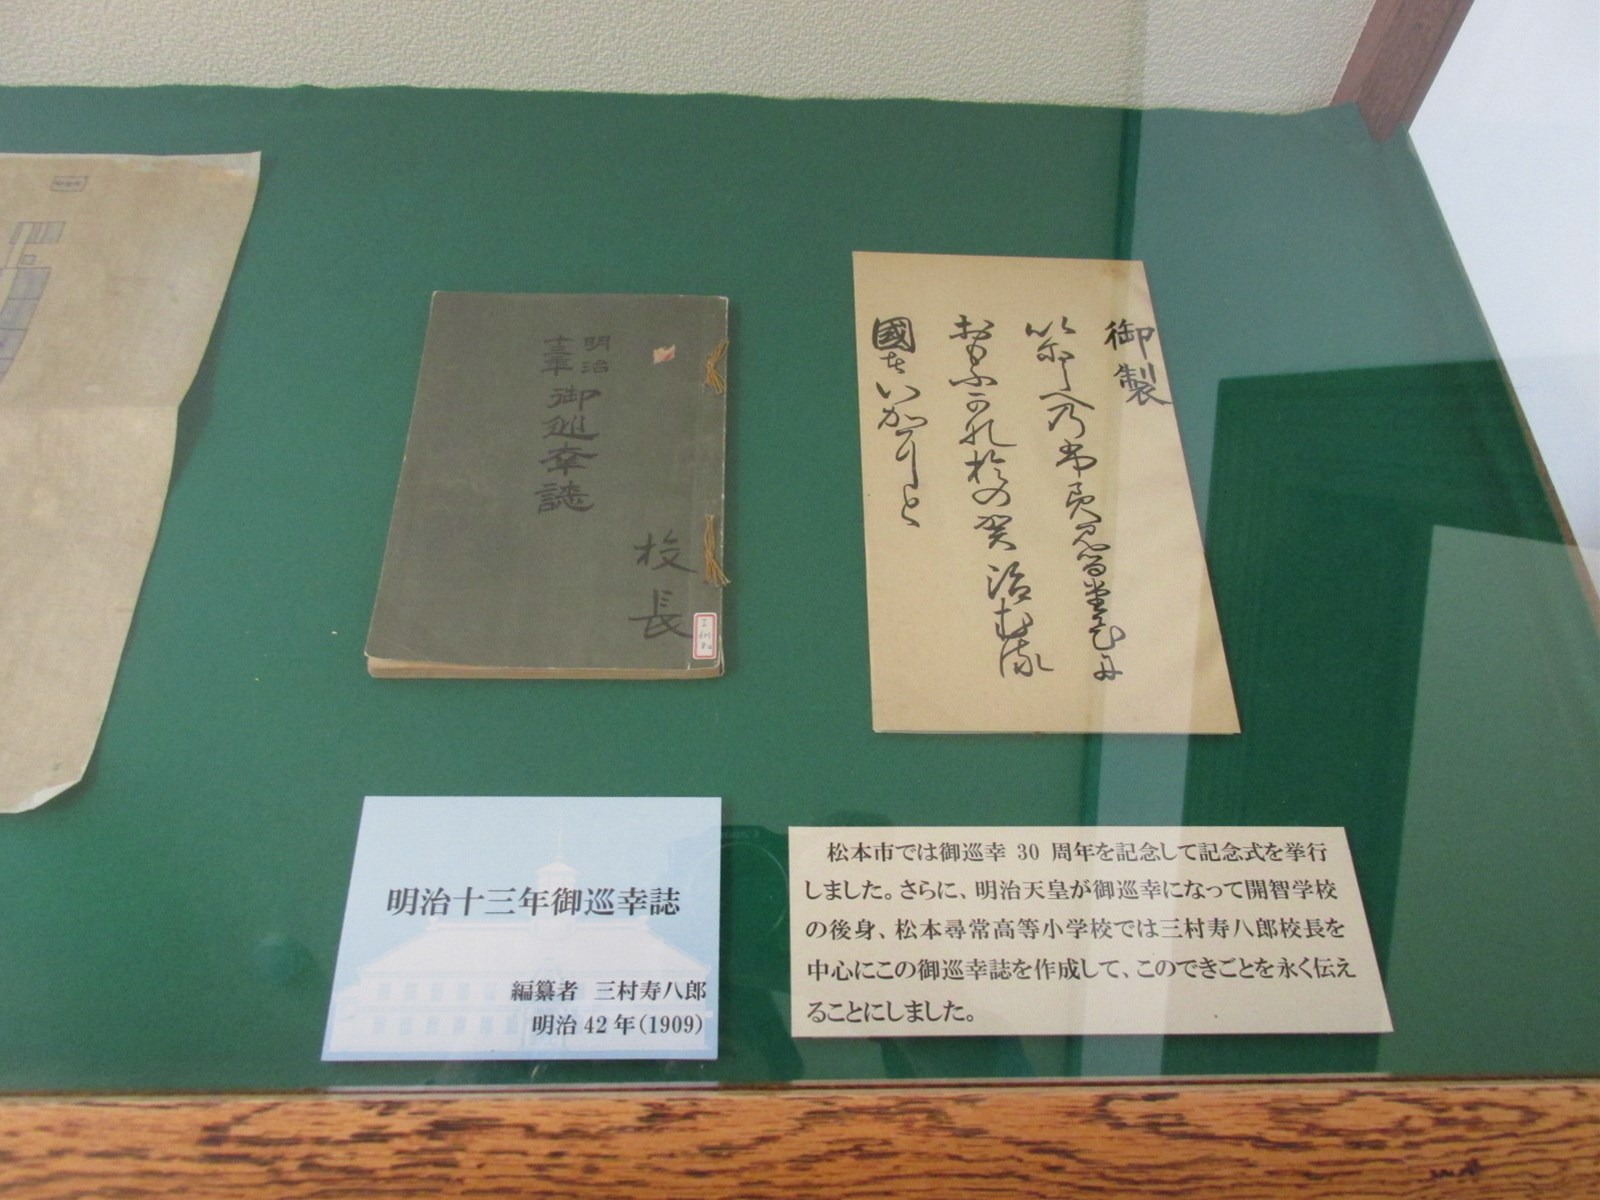 明治
十三年
御巡幸誌
校長
御製
明治十三年御巡幸誌
編纂者 三村寿八郎
明治42年(1909)
松本市では御巡幸 30 周年を記念して記念式を挙行
しました。さらに、明治天皇が御巡幸になって開智学校
の後身、松本尋常高等小学校では三村寿八郎校長を
中心にこの御巡幸誌を作成して、このできごとを永く伝え
ることにしました。